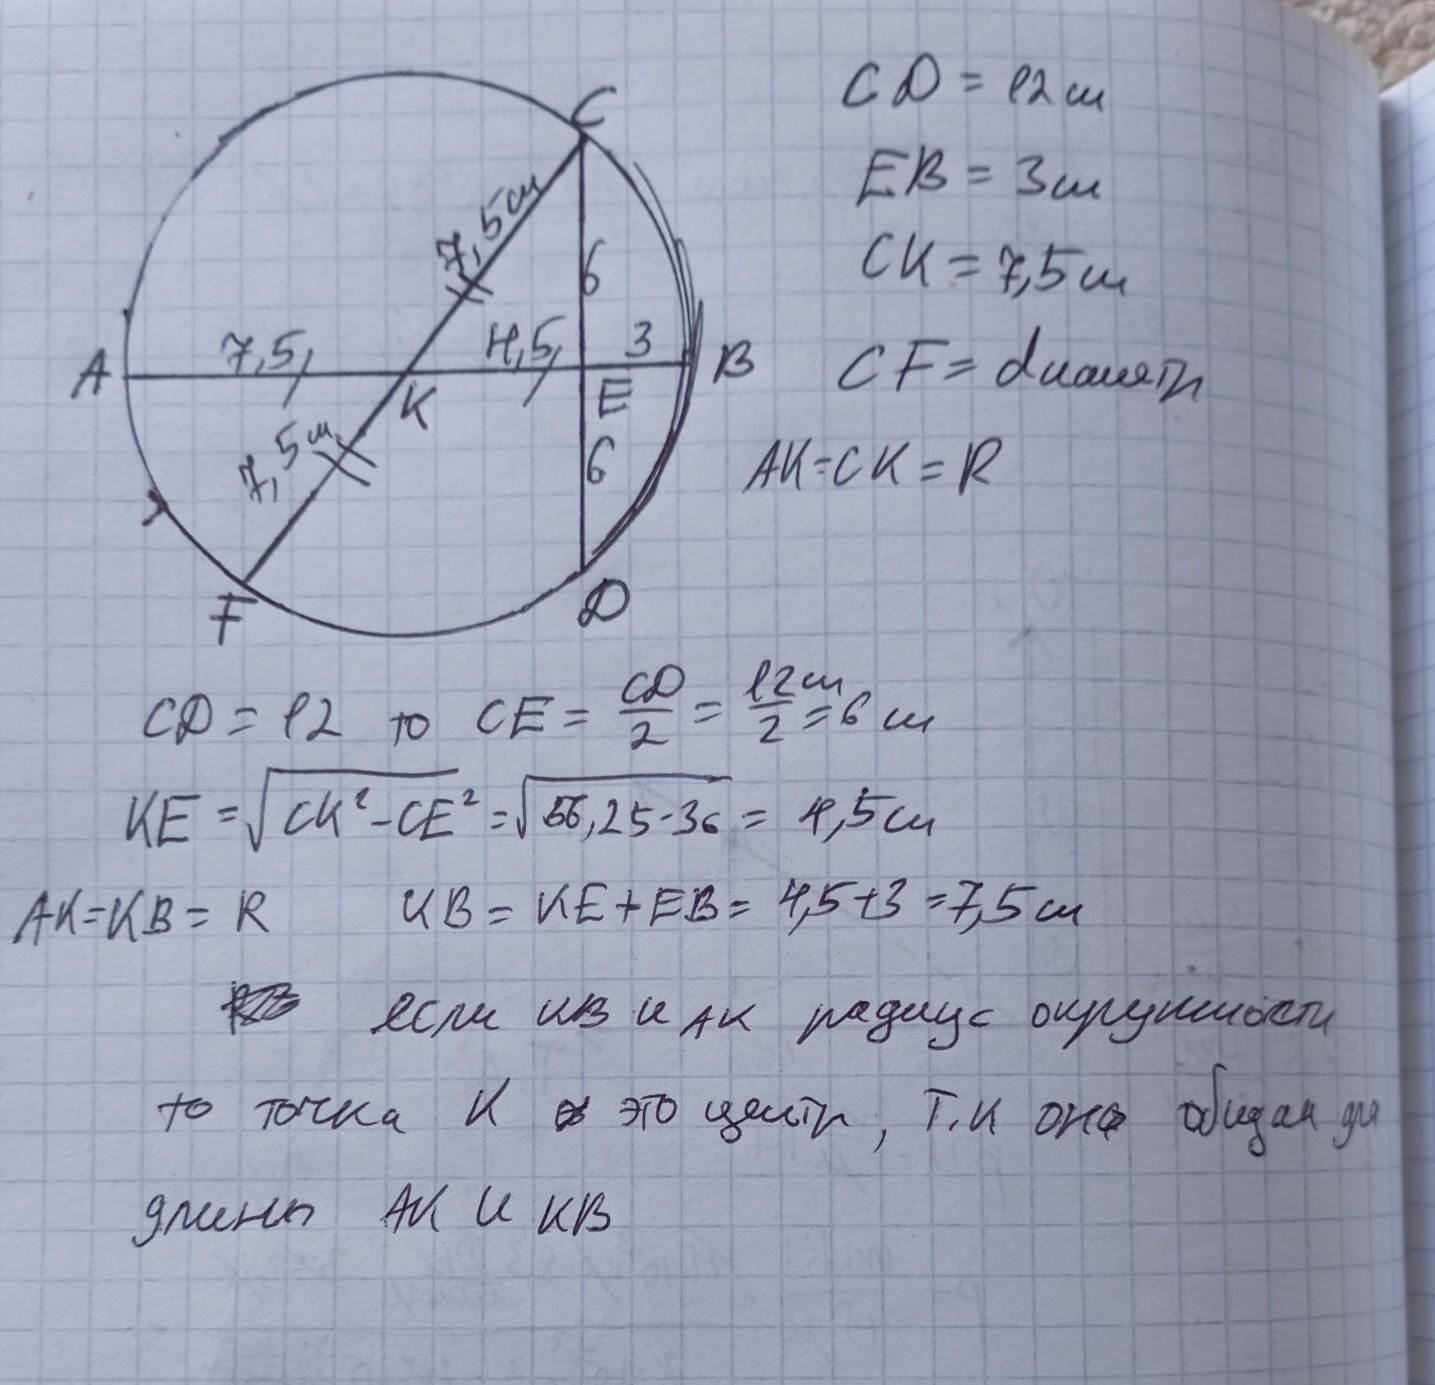 C
7,5см
6
A
7,5
4,5
3
B
K
E
7,5см
6
F
D
CD = 12 см
EB = 3 см
CK = 7,5 см
CF = диаметр
AK = CK = R
CD = 12 то CE = CD/2 = 12см/2 = 6 см
KE = √CK² - CE² = √56,25-36 = 4,5 см
AK = KB = R KB = KE + EB = 4,5+3 = 7,5 см
если KB и AK радиус окружности
то точка K это центр, т.к она общая для
длины AK и KB